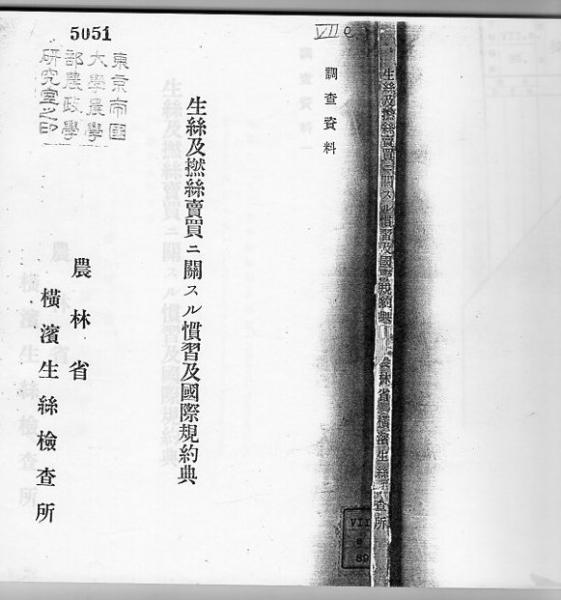 VII e
調査資料
生絲及撚絲賣買ニ關スル慣習及國際規約典
農林省
橫濱生絲檢査所
5051
東京帝國
大學農學
部農政學
研究室之印
生絲及撚絲賣買ニ關スル慣習及國際規約典
農林省橫濱生絲檢査所
VII
e
89